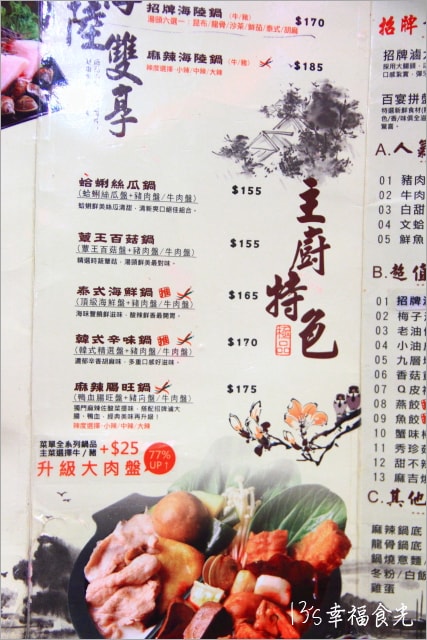 招牌海陸鍋 (牛/豬) $170
湯頭六選一/昆布/龍骨/沙茶/鮮茄/泰式/胡麻
麻辣海陸鍋 (牛/豬) $185
辣度選擇:小辣/中辣/大辣
陸雙享
主廚特色
極品
蛤蜊絲瓜鍋 $155
(蛤蜊絲瓜盤+豬肉盤/牛肉盤)
蛤蜊鮮美絲瓜清甜,清新爽口絕佳組合。
蕈王百菇鍋 $155
(蕈王百菇盤+豬肉盤/牛肉盤)
精選時蔬蕈菇,湯頭鮮美最對味。
泰式海鮮鍋 $165
(頂級海鮮盤+豬肉盤/牛肉盤)
海味豐饒鮮滋味,酸辣鮮香最開胃。
韓式辛味鍋 $170
(韓式精選盤+豬肉盤/牛肉盤)
濃郁辛香胡麻味,多重口感好滋味。
麻辣腸旺鍋 $175
(鴨血腸旺盤+豬肉盤/牛肉盤)
獨門麻辣佐酸菜提味,搭配招牌滷大
腸、鴨血、經典美味再升級!
辣度選擇:小辣/中辣/大辣
菜單全系列鍋品
主菜選擇牛/豬 +$25
升級大肉盤
77%
UP↑
招牌
招牌滷大
採用大腸頭,
口感紮實,彈
百宴拼盤
特選新鮮食材
色/香/味俱全
A.人氣
01 豬肉
02 牛肉
03 白甜
04 文蛤
05 鮮魚
B.超值
01 招牌
02 梅子
03 老油
04 小油
05 九層
06 香菇
07 Q皮
08 燕餃
09 魚餃
10 蟹味
11 秀珍菇
12 甜不辣
13 麻吉燒
C.其他
麻辣鍋底
龍骨鍋底
鍋燒意麵
冬粉/白飯
雞蛋
13's幸福食光